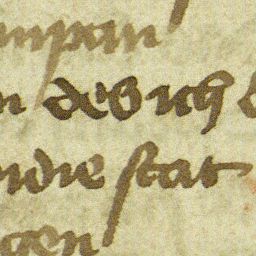 mpan
n des ich
n die stat
gen